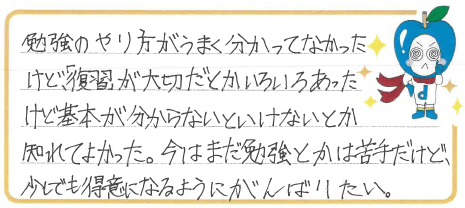 勉強のやり方がうまく分かってなかった
けど「復習」が大切だとかいろいろあった
けど基本が分からないといけないとか
知れてよかった。今はまだ勉強とかは苦手だけど、
少しでも得意になるようにがんばりたい。
d